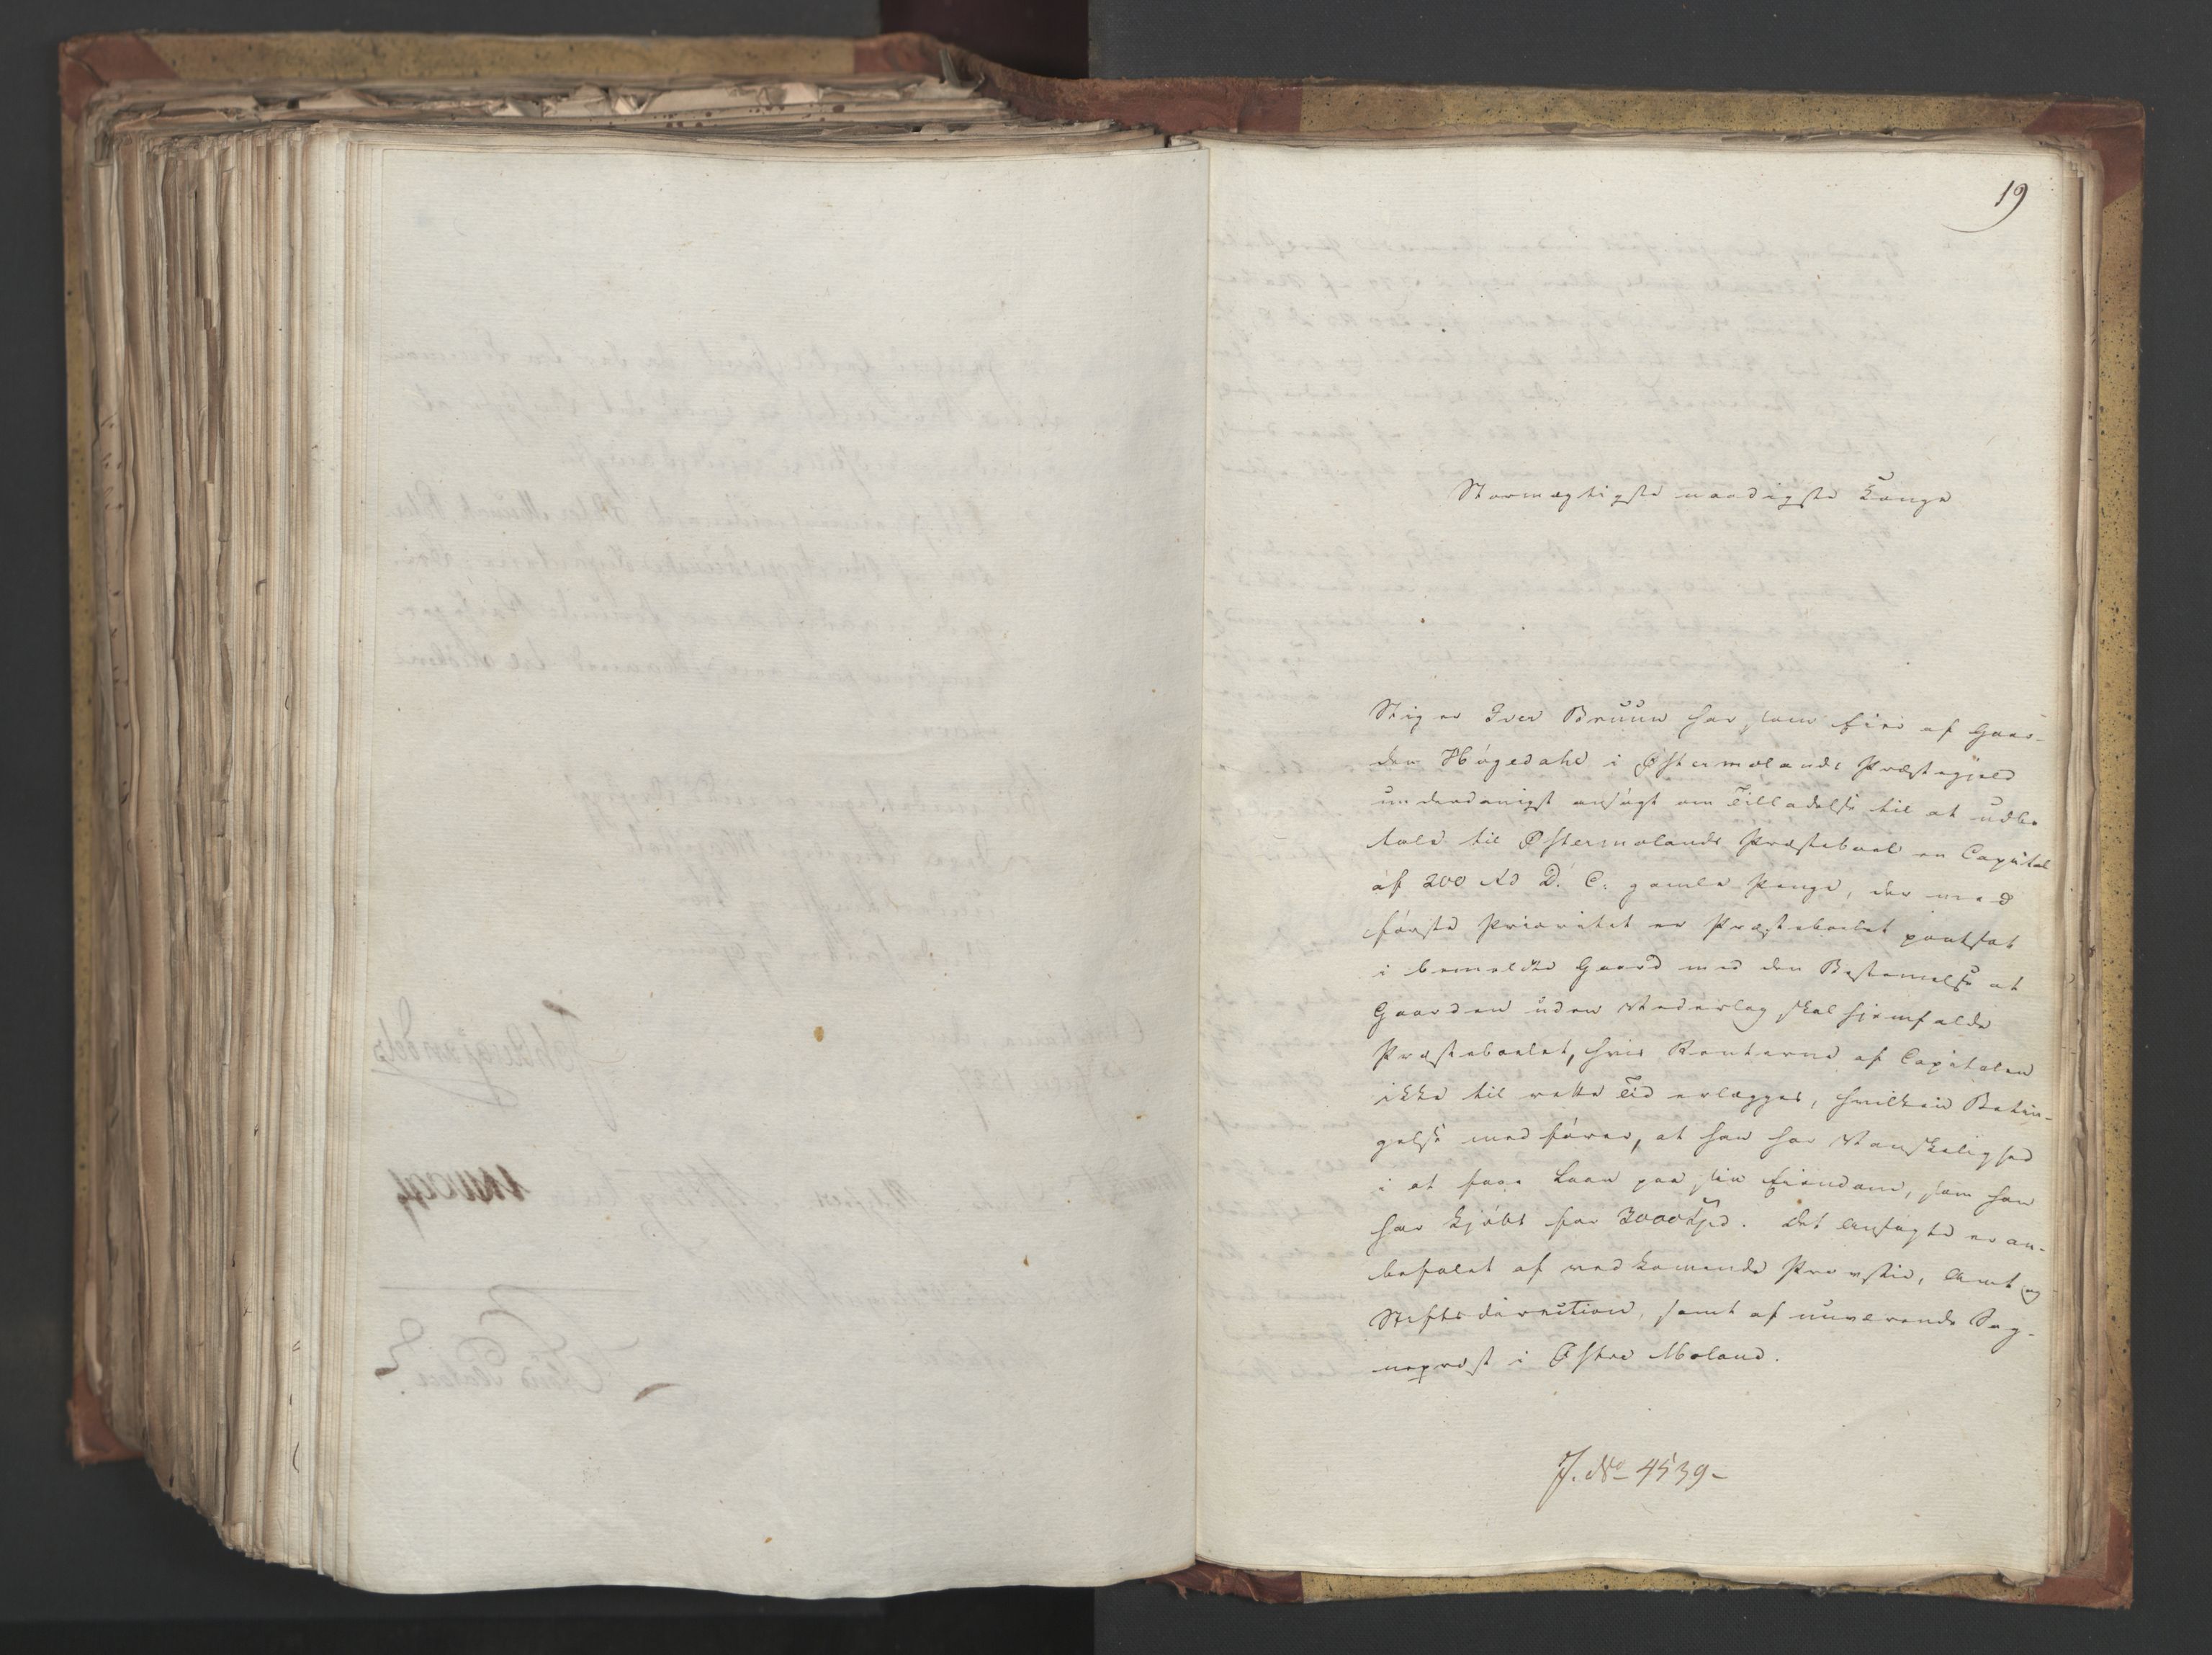 19
Stormægtigste naadigste Konge
Stiger Iver Bruun har som Eier af Gaar-
den Høgedahl i Østermolands Præstegjeld
underdanigst ansøgt om Tilladelse til at udbe
tale til Østermolands Præsteboel en Capital
af 200 Rd D. C. gamle Penge, der med
første Prioritet er Præsteboelet pantsat
i bemeldte Gaard med den Bestemelse at
Gaarden uden Vederlag skal hjemfalde
Præsteboelet, hvis Renterne af Capitalen
ikke til rette Tid erlægges, hvilken Betin-
gelse medfører, at han har Vanskelighed
i at faae Laan paa sin Eiendom, som han
har kjøbt for 3000 Spd. Det Ansøgte er an-
befalet af vedkomende Provstie, Amt og
Stiftsdirection, samt af nuværende Sog-
nepræst i Østre Moland.
J. No 4539-